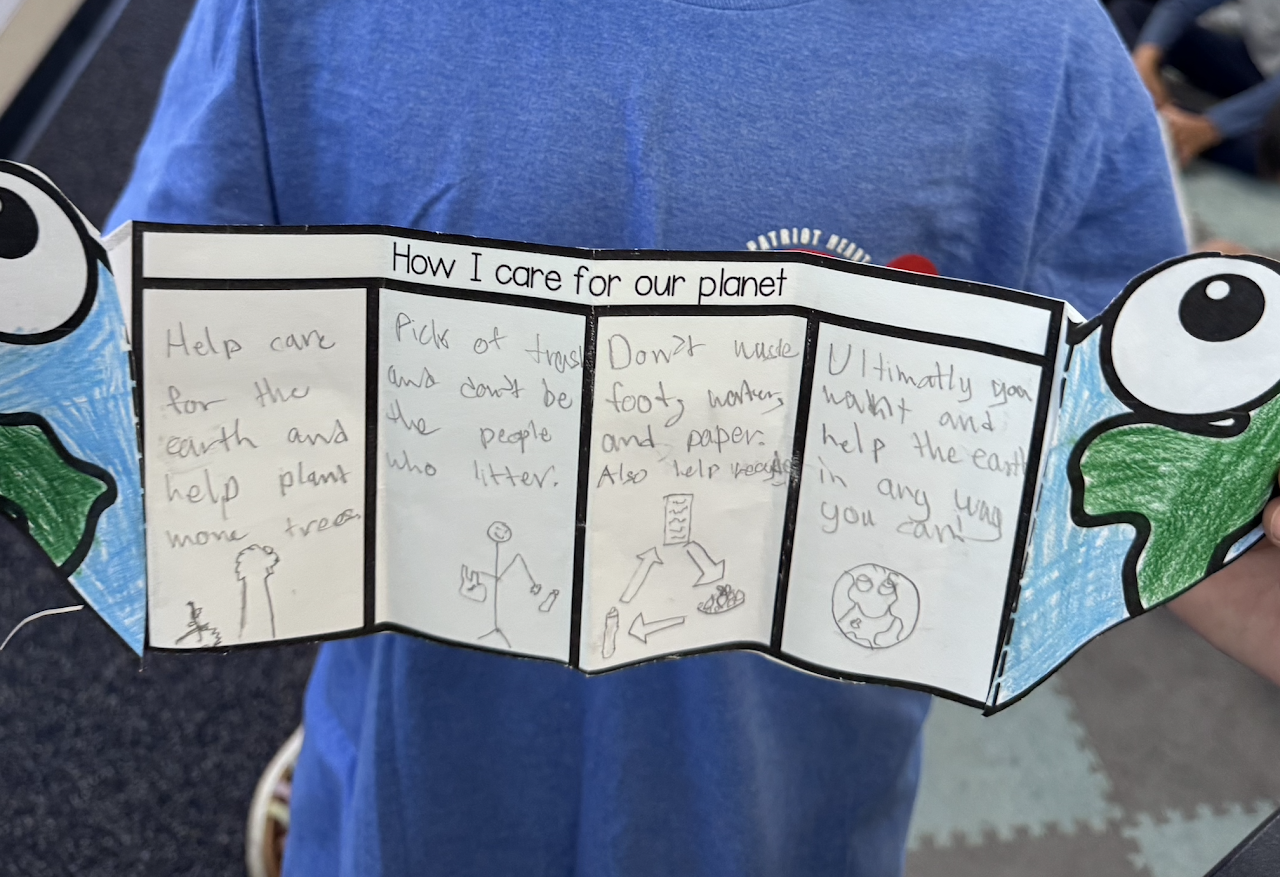 PATRIOT HEART
How I care for our planet
Help care
for the
earth and
help plant
more trees
Pick of trash
and don't be
the people
who litter.
Don't waste
foot,
and paper.
Also help
Ultimatly you
want and
help the earth
in any way
you can!